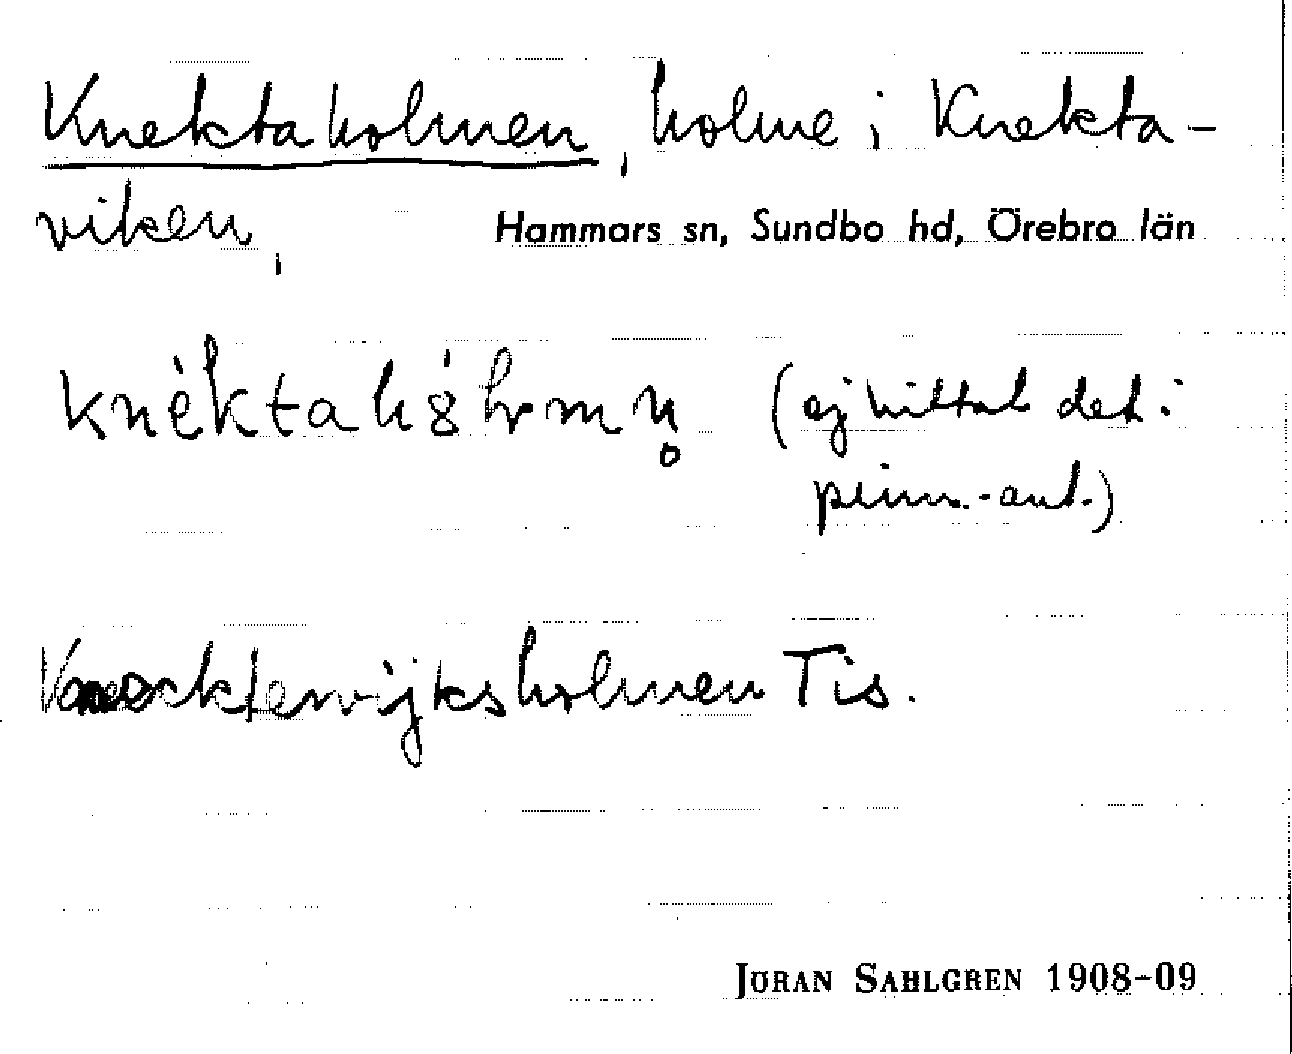 Knektaholmen, holme i Knekta-
viken,
Hammars sn, Sundbo hd, Örebro län
(ej hittat det i
prim.-ant.)
Knecktevijksholmen Tis.
JÖRAN SAHLGREN 1908-09